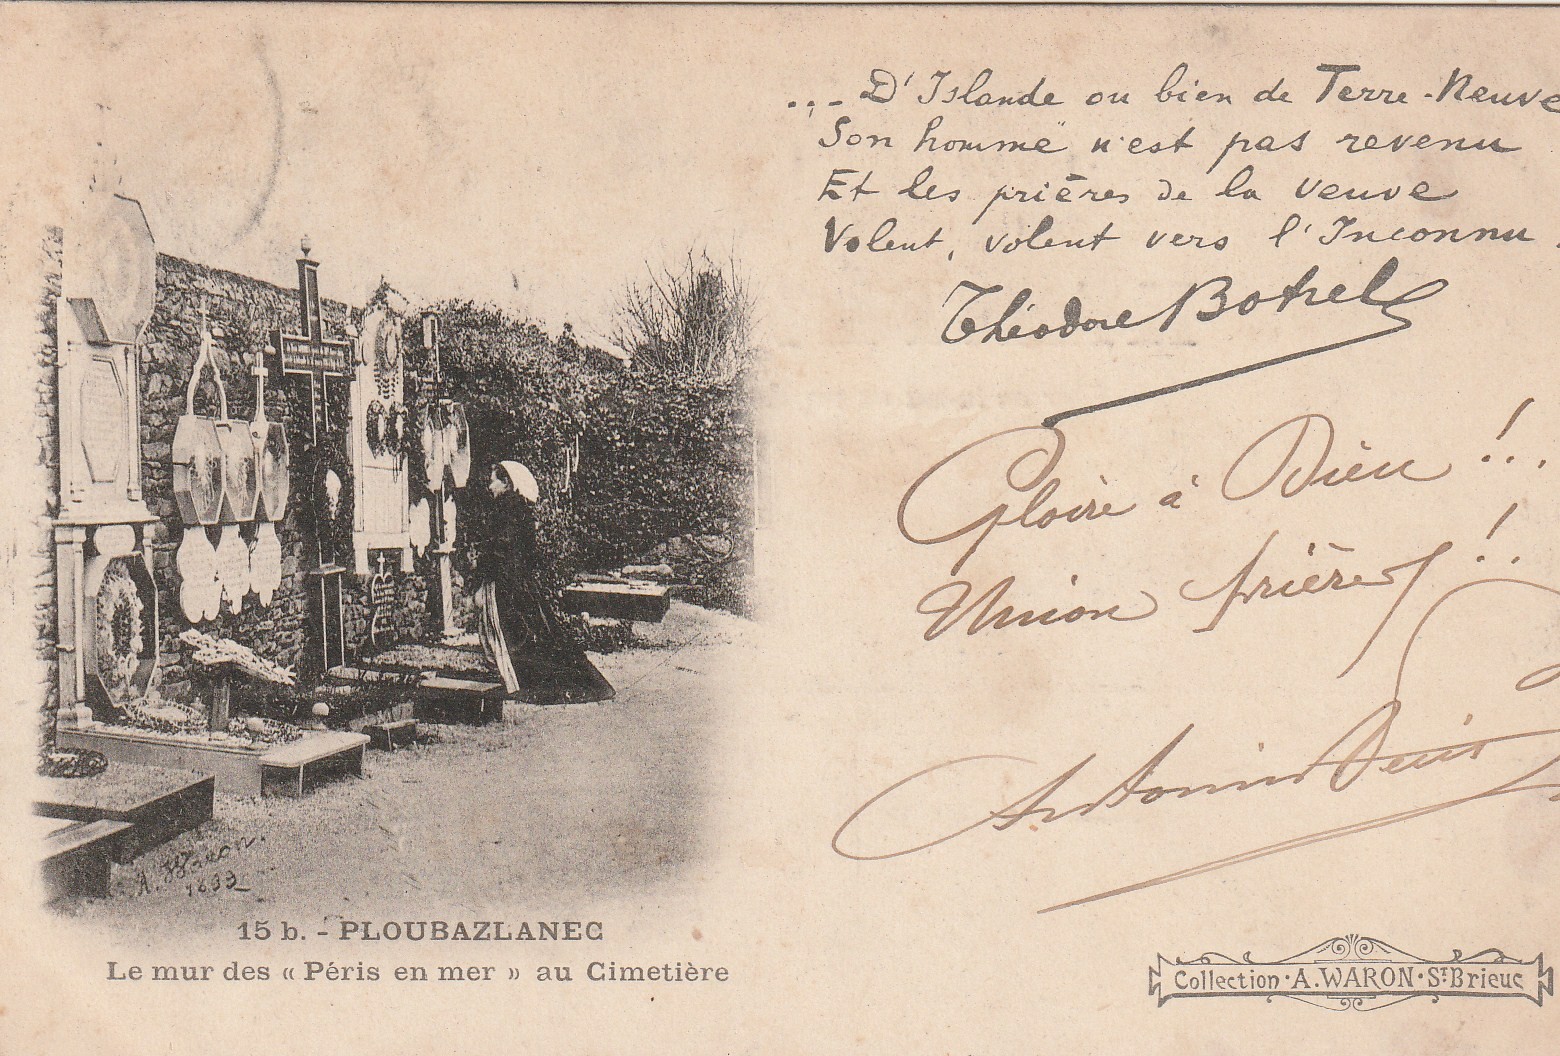 ... D'Islande ou bien de Terre-Neuve
Son homme n'est pas revenu
Et les prières de la veuve
Volent, volent vers l'Inconnu.
Théodore Botrel
Gloire à Dieu !...
Union prières !..
Antonin
A. Waron.
15 b. - PLOUBAZLANEC
Le mur des « Péris en mer » au Cimetière
Collection · A. WARON · St Brieuc